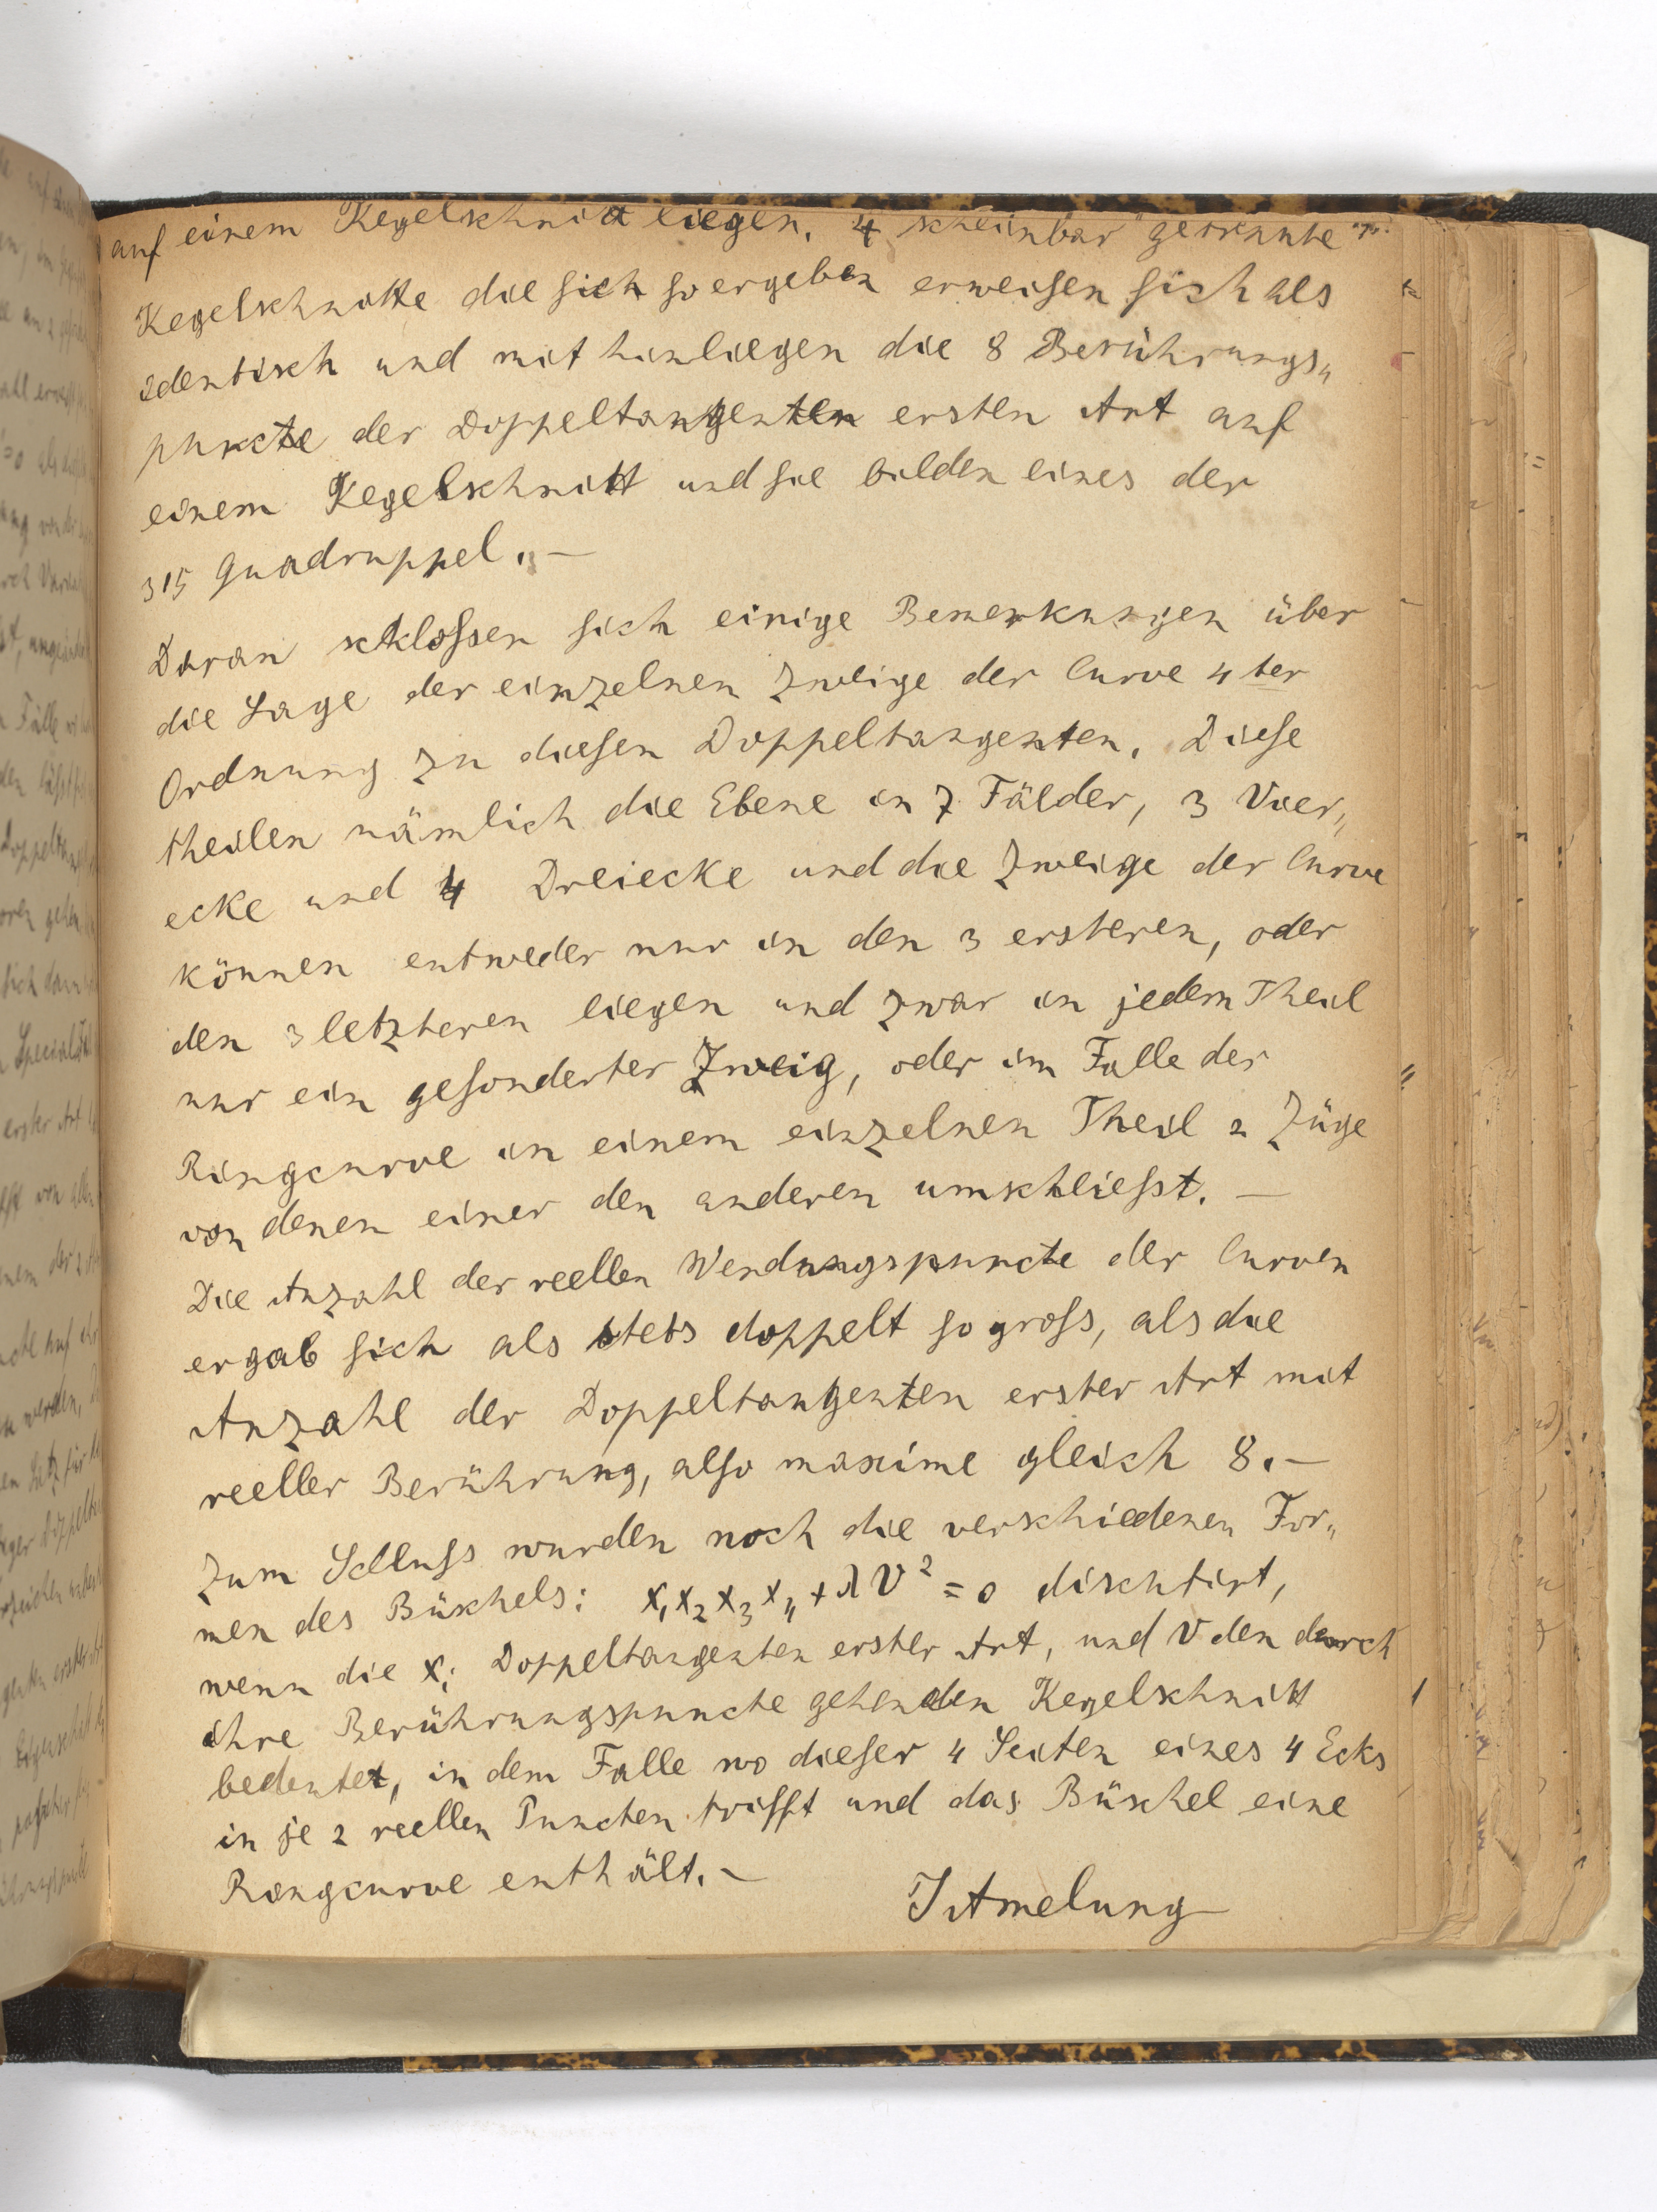 auf einem Kegelschnitt liegen. 4 scheinbar getrennte
Kegelschnitte die sich so ergeben erweisen sich als
identisch und mit hin liegen die 8 Berührungs„
puncte der Doppeltangenten ersten Art auf
einem Kegelschnitt und sie bilden eines der
315 Quadruppel. –
Daran schlossen sich einige Bemerkungen über
die Lage der einzelnen Zweige der Curve 4 ter
Ordnung zu diesen Doppeltangenten. Diese
theilen nämlich die Ebene in 7 Fälder, 3 Vier„
ecke und 4 Dreiecke und die Zweige der Curve
können entweder nur in den 3 ersteren, oder
den 3 letzteren liegen und zwar in jedem Theil
nur ein gesonderter Zweig, oder im Falle der
Ringcurve in einem einzelnen Theil 2 Züge
von denen einer den anderen umschliesst. –
Die Anzahl der reellen Wendungspuncte der Curven
ergab sich als stets doppelt so gross, als die
Anzahl der Doppeltangenten erster Art mit
reeller Berührung, also maxime gleich 8. –
Zum Schluss wurden noch die verschiedenen For„
men des Büschels: x₁x₂x₃x₄ + λV² = 0 dischtirt,
wenn die xᵢ Doppeltangenten erster Art, und V den durch
ihre Berührungspuncte gehenden Kegelschnitt
bedeutet, in dem Falle wo dieser 4 Seiten eines 4 Ecks
in je 2 reellen Puncten trifft und das Büschel eine
Ringcurve enthält. –
J Amelung